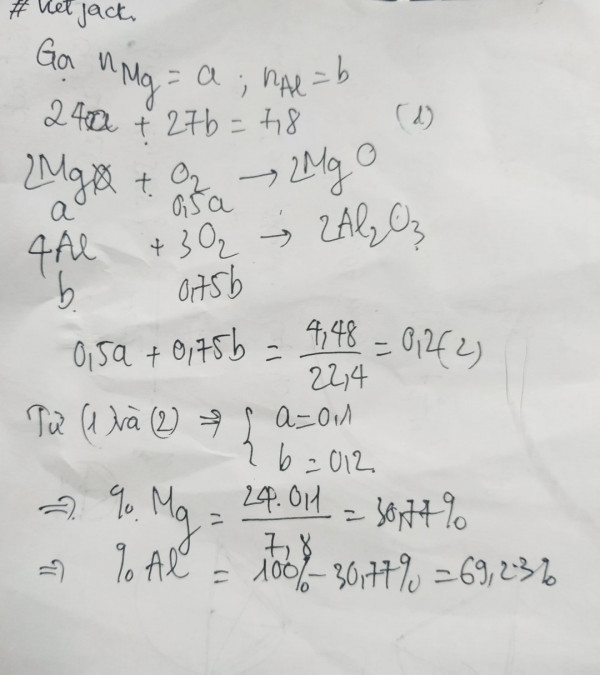 # Netjack.
Gọi nMg = a ; nAl = b
24a + 27b = 7,8 (1)
2Mg + O2 → 2MgO
a 0,5a
4Al + 3O2 → 2Al2O3
b 0,75b
0,5a + 0,75b = 4,48/22,4 = 0,2 (2)
Từ (1) và (2) ⇒ { a = 0,1
b = 0,2
⇒ % Mg = 24.0,1/7,8 = 30,77%
⇒ % Al = 100% - 30,77% = 69,23%